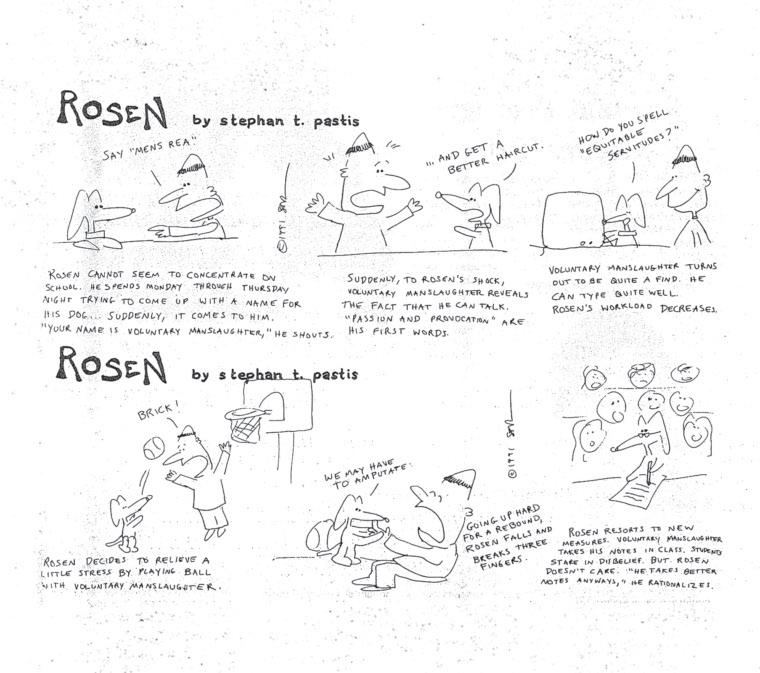 ROSEN
by stephan t. pastis
SAY "MENS REA"
©1991 
... AND GET A
BETTER HAIRCUT.
HOW DO YOU SPELL
"EQUITABLE
SERVITUDES?"
ROSEN CANNOT SEEM TO CONCENTRATE ON
SCHOOL. HE SPENDS MONDAY THROUGH THURSDAY
NIGHT TRYING TO COME UP WITH A NAME FOR
HIS DOG... SUDDENLY, IT COMES TO HIM.
"YOUR NAME IS VOLUNTARY MANSLAUGHTER," HE SHOUTS.
SUDDENLY, TO ROSEN'S SHOCK,
VOLUNTARY MANSLAUGHTER REVEALS
THE FACT THAT HE CAN TALK.
"PASSION AND PROVOCATION" ARE
HIS FIRST WORDS.
VOLUNTARY MANSLAUGHTER TURNS
OUT TO BE QUITE A FIND. HE
CAN TYPE QUITE WELL.
ROSEN'S WORKLOAD DECREASES.
ROSEN
by stephan t. pastis
BRICK!
WE MAY HAVE
TO AMPUTATE.
©1991
ROSEN DECIDES TO RELIEVE A
LITTLE STRESS BY PLAYING BALL
WITH VOLUNTARY MANSLAUGHTER.
GOING UP HARD
FOR A REBOUND,
ROSEN FALLS AND
BREAKS THREE
FINGERS.
ROSEN RESORTS TO NEW
MEASURES. VOLUNTARY MANSLAUGHTER
TAKES HIS NOTES IN CLASS. STUDENTS
STARE IN DISBELIEF. BUT ROSEN
DOESN'T CARE. "HE TAKES BETTER
NOTES ANYWAYS," HE RATIONALIZES.